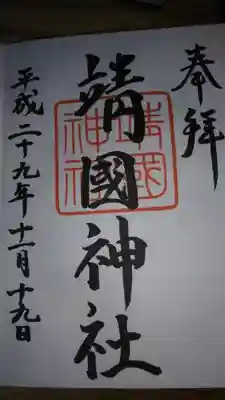 奉拝
靖國神社
靖國神社
平成二十九年十一月十九日